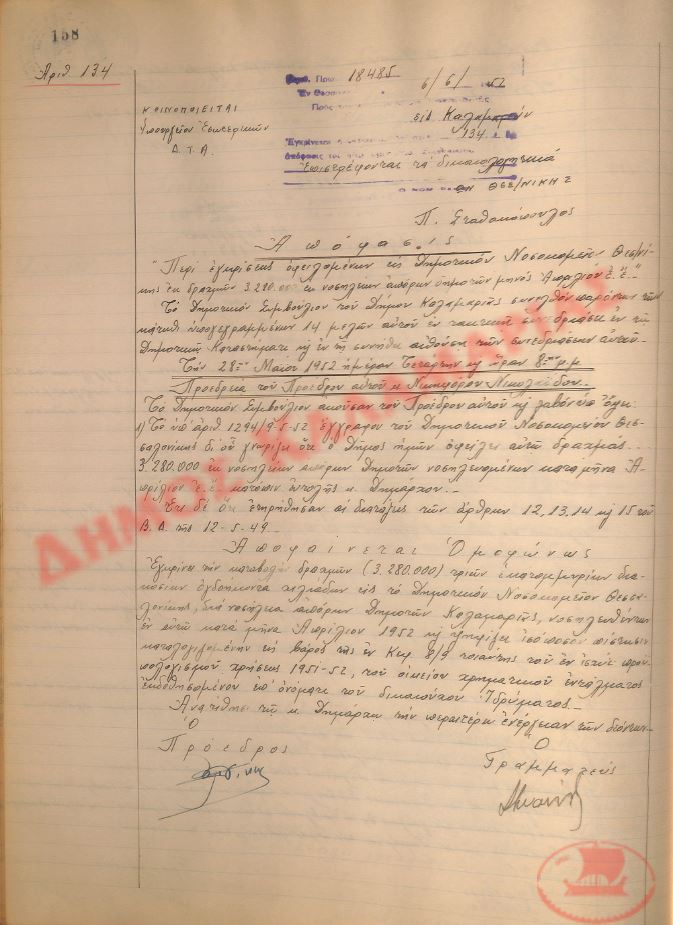 158
Ἀριθ. 134
ΚΟΙΝΟΠΟΙΕΙΤΑΙ
Ὑπουργεῖον Ἐσωτερικῶν
Δ.Τ.Α.
Πρω 18485 6/6/ 52
Ἐν Θεσσ
Πρὸς
εἰς Καλαμαριάν
Ἐγκρίνεται 134
ἀπόφασις τοῦ
Ἐπιστρέφονται τὰ δικαιολογητικά
Ο ΝΟΜ ΘΕΣ/ΝΙΚΗΣ
Π. Σταθακόπουλος
Ἀπόφασις
"Περὶ ἐγκρίσεως ὀφειλομένων εἰς Δημοτικὸν Νοσοκομεῖον Θεσ/νί-
κης ἐκ δραχμῶν 3.280.000 ἐκ νοσηλείων ἀπόρων δημοτῶν μηνὸς Ἀπριλίου ἔ.ἔ."
Τὸ Δημοτικὸν Συμβούλιον τοῦ Δήμου Καλαμαριᾶς συνελθὸν παρόντων τῶν
κάτωθι ὑπογεγραμμένων 14 μελῶν αὐτοῦ ἐν τακτικῇ συνεδριάσει ἐν τῷ
Δημοτικῷ Καταστήματι καὶ ἐν τῇ συνήθει αἰθούσῃ τῶν συνεδριάσεων αὐτοῦ
Τὴν 28ην Μαΐου 1952 ἡμέραν Τετάρτην καὶ ὥραν 8ην μ.μ
Προεδρεία τοῦ Προέδρου αὐτοῦ κ. Νικηφόρου Νικολαΐδου
Τὸ Δημοτικὸν Συμβούλιον ἀκοῦσαν τοῦ Προέδρου αὐτοῦ καὶ λαβὸν ὑπ' ὄψει
1) Τὸ ὑπ' ἀριθ. 1294/9-5-52 ἔγγραφον τοῦ Δημοτικοῦ Νοσοκομείου Θεσ-
σαλονίκης δι' οὗ γνωρίζει ὅτι ὁ Δῆμος ἡμῶν ὀφείλει αὐτῷ δραχμάς
3.280.000 ἐκ νοσηλείων ἀπόρων Δημοτῶν νοσηλευομένων κατὰ μῆνα Ἀ-
πρίλιον ἔ.ἔ. κατόπιν ἐντολῆς κ. Δημάρχου
Ἔτι δὲ ὅτι ἐτηρήθησαν αἱ διατάξεις τῶν ἄρθρων 12, 13, 14 καὶ 15 τοῦ
Β.Δ. τῆς 12-5-49
Ἀποφαίνεται Ὁμοφώνως
Ἐγκρίνει τὴν καταβολὴν δραχμῶν (3.280.000) τριῶν ἑκατομμυρίων δια-
κοσίων ὀγδοήκοντα χιλιάδων εἰς τὸ Δημοτικὸν Νοσοκομεῖον Θεσσα-
λονίκης, διὰ νοσήλεια ἀπόρων Δημοτῶν Καλαμαριᾶς, νοσηλευθέντων
ἐν αὐτῷ κατὰ μῆνα Ἀπρίλιον 1952 καὶ ψηφίζει ἰσόποσον πίστωσιν
καταλογιζομένην εἰς βάρος τῆς ἐν Κεφ. 8/9 τοιαύτης τοῦ ἐν ἰσχύει προϋ-
πολογισμοῦ χρήσεως 1951-52, τοῦ οἰκείου χρηματικοῦ ἐντάλματος
ἐκδοθησομένου ἐπ' ὀνόματι τοῦ δικαιούχου Ἱδρύματος
Ἀνατίθησι τῷ κ. Δημάρχῳ τὴν περαιτέρω ἐνέργειαν τῶν δεόντων
Ὁ
Πρόεδρος
Ὁ
Γραμματεύς
ΔΗΜΟΣ ΚΑΛΑΜΑΡΙΑΣ